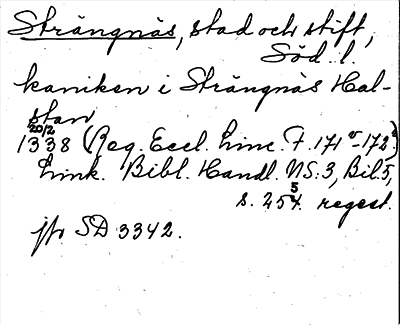 Strängnäs, stad och stift,
Söd. l.
kaniken i Strängnäs Hal-
stan
20/2
1338 (Reg. Eccl. Linc. F. 171v-172v)
Link. Bibl. Handl. NS:3, Bil. 5,
s. 254. regest.
jfr SD 3342.